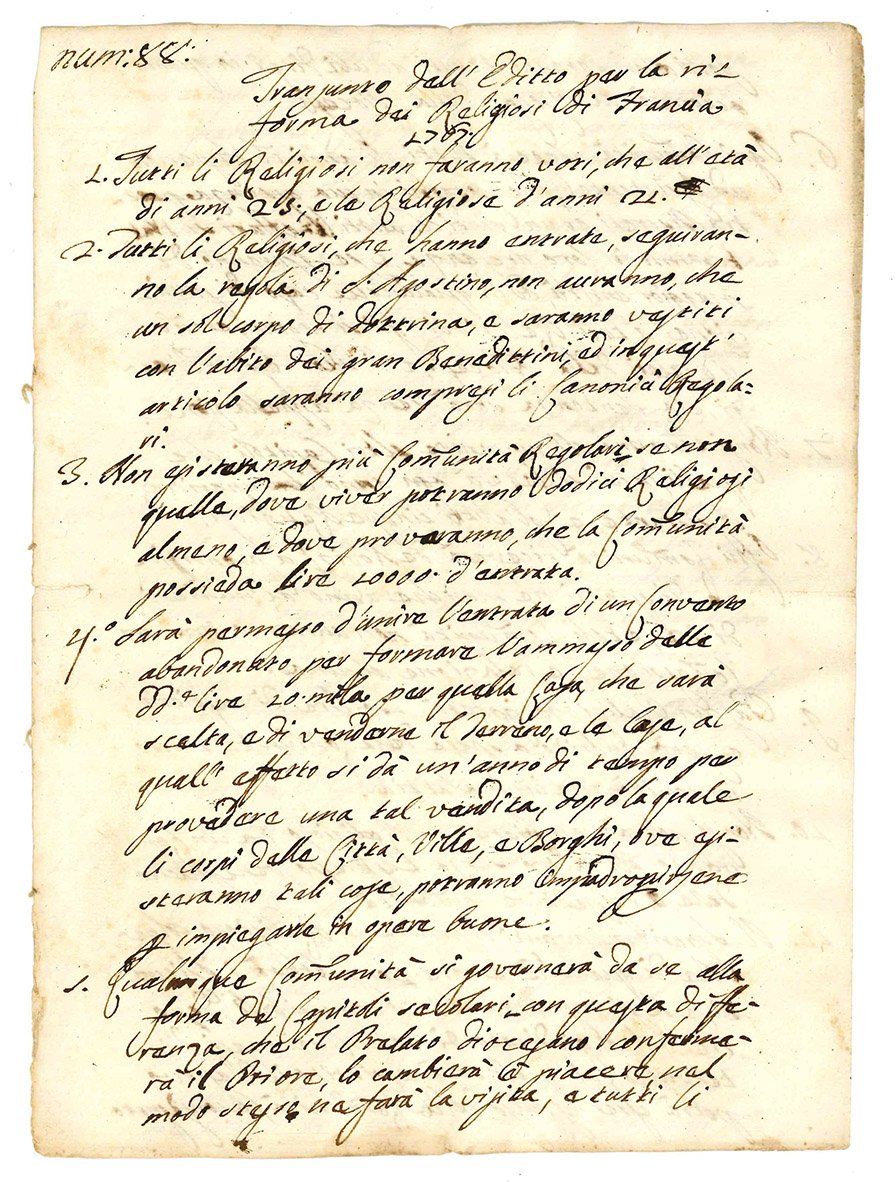 num: 88:
Transunto dell' Editto per la ri=
forma dei Religiosi di Francia
1767.
1. Tutti li Religiosi non faranno voti, che all' età
di anni 25:, e le Religiose d'anni 21.
2. Tutti li Religiosi, che hanno entrate, seguiran=
no la regola di S. Agostino, non auranno, che
un sol corpo di dottrina, e saranno vestiti
con l'abito dei gran Benedittini, ed in quest'
articolo saranno compresi li Canonici Regola=
ri.
3. Non esisteranno più Com̃unità Regolari, se non
quelle, dove viver potranno dodici Religiosi
almeno, e dove proveranno, che la Com̃unità
possieda lire 10000. d'entrata.
4.° Sarà permesso d'unire l'entrata di un Convento
abandonato per formare l'ammasso delle
dd.e lire 10. mila per quella Casa, che sarà
scelta, e di venderne il terreno, e le Case, al
quall' effetto si dà un' anno di tempo per
provedere una tal vendita, dopo la quale
li corpi delle Città, Ville, e Borghi, ove esi=
steranno tali cose, potranno impadronirsene
p impiegarle in opere buone.
5. Qualunque Com̃unità si governerà da se alla
forma de Capitoli secolari, con questa diffe=
renza, che il Prelato diocesano conferme=
rà il Priore, lo cambierà à piacere, nel
modo stesso ne farà la visita, e tutti li